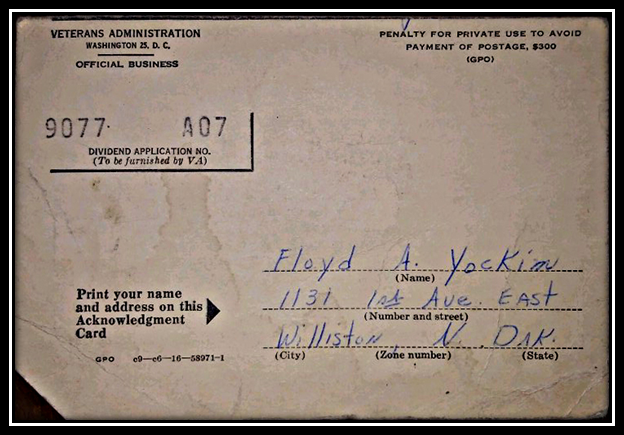 VETERANS ADMINISTRATION
WASHINGTON 25, D. C.
OFFICIAL BUSINESS
PENALTY FOR PRIVATE USE TO AVOID
PAYMENT OF POSTAGE, $300
(GPO)
9077 A07
DIVIDEND APPLICATION NO.
(To be furnished by VA)
Floyd A. Yockim
(Name)
1131 1st Ave. EAST
(Number and street)
Williston, N. DAK.
(City) (Zone number) (State)
Print your name
and address on this
Acknowledgment
Card
GPO c9—c6—16—58971-1